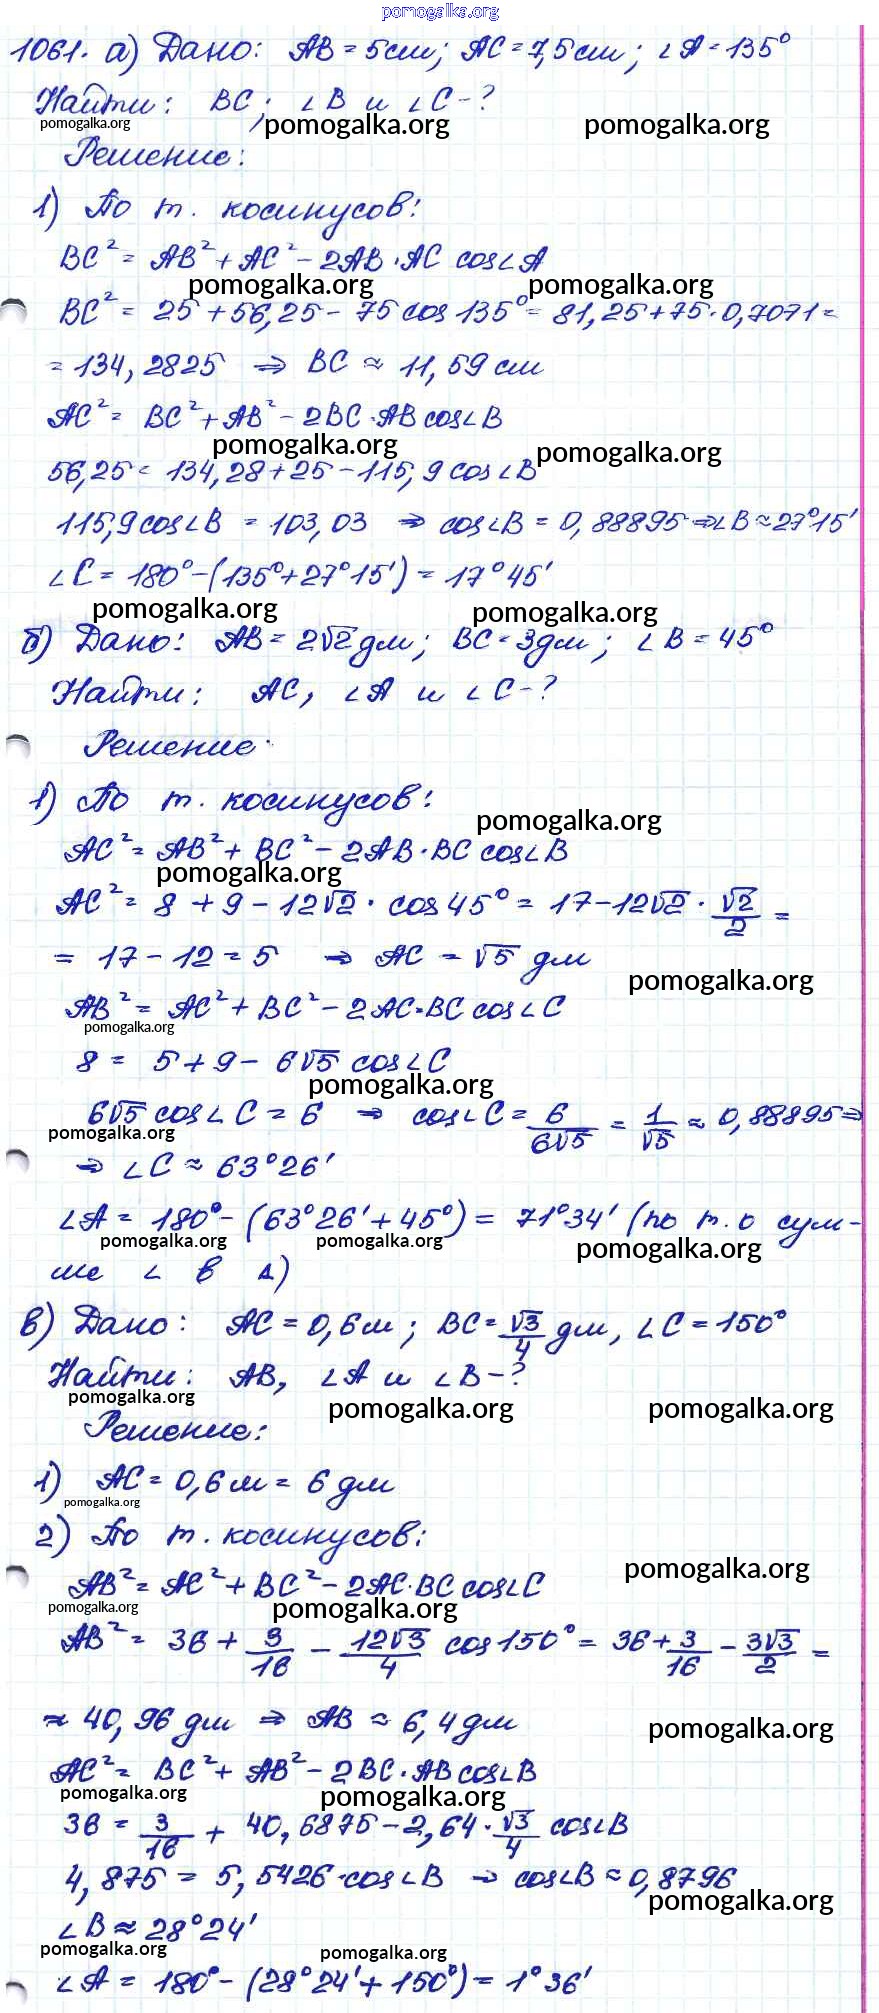 pomogalka.org
1061. а) Дано: AB = 5см; AC = 7,5см; ∠A = 135°
Найти: BC; ∠B и ∠C - ?
pomogalka.org pomogalka.org pomogalka.org
Решение:
1) По т. косинусов:
BC² = AB² + AC² - 2AB · AC cos∠A
pomogalka.org pomogalka.org
BC² = 25 + 56,25 - 75 cos 135° = 81,25 + 75 · 0,7071 =
= 134,2825 ⇒ BC ≈ 11,59 см
AC² = BC² + AB² - 2BC · AB cos∠B
pomogalka.org pomogalka.org
56,25 = 134,28 + 25 - 115,9 cos∠B
115,9 cos∠B = 103,03 ⇒ cos∠B = 0,88895 ⇒ ∠B ≈ 27°15'
∠C = 180° - (135° + 27°15') = 17°45'
pomogalka.org pomogalka.org
б) Дано: AB = 2√2 дм; BC = 3дм; ∠B = 45°
Найти: AC, ∠A и ∠C - ?
Решение:
1) По т. косинусов:
pomogalka.org
AC² = AB² + BC² - 2AB · BC cos∠B
pomogalka.org
AC² = 8 + 9 - 12√2 · cos 45° = 17 - 12√2 · √2/2 =
= 17 - 12 = 5 ⇒ AC = √5 дм
pomogalka.org
AB² = AC² + BC² - 2AC · BC cos∠C
pomogalka.org
8 = 5 + 9 - 6√5 cos∠C
pomogalka.org
6√5 cos∠C = 6 ⇒ cos∠C = 6/6√5 = 1/√5 ≈ 0,88895 ⇒
pomogalka.org
⇒ ∠C ≈ 63°26'
∠A = 180° - (63°26' + 45°) = 71°34' (по т. о сум-
pomogalka.org pomogalka.org pomogalka.org
ме ∠ в Δ)
в) Дано: AC = 0,6м; BC = √3/4 дм, ∠C = 150°
Найти: AB, ∠A и ∠B - ?
pomogalka.org pomogalka.org pomogalka.org
Решение:
1) AC = 0,6 м = 6 дм
pomogalka.org
2) По т. косинусов:
pomogalka.org
AB² = AC² + BC² - 2AC · BC cos∠C
pomogalka.org pomogalka.org
AB² = 36 + 3/16 - 12√3/4 cos 150° = 36 + 3/16 - 3√3/2 =
≈ 40,96 дм ⇒ AB ≈ 6,4 дм
pomogalka.org
AC² = BC² + AB² - 2BC · AB cos∠B
pomogalka.org pomogalka.org
36 = 3/16 + 40,6875 - 2,64 · √3/4 cos∠B
4,875 = 5,5426 · cos∠B ⇒ cos∠B ≈ 0,8796
pomogalka.org
∠B ≈ 28°24'
pomogalka.org pomogalka.org
∠A = 180° - (28°24' + 150°) = 1°36'